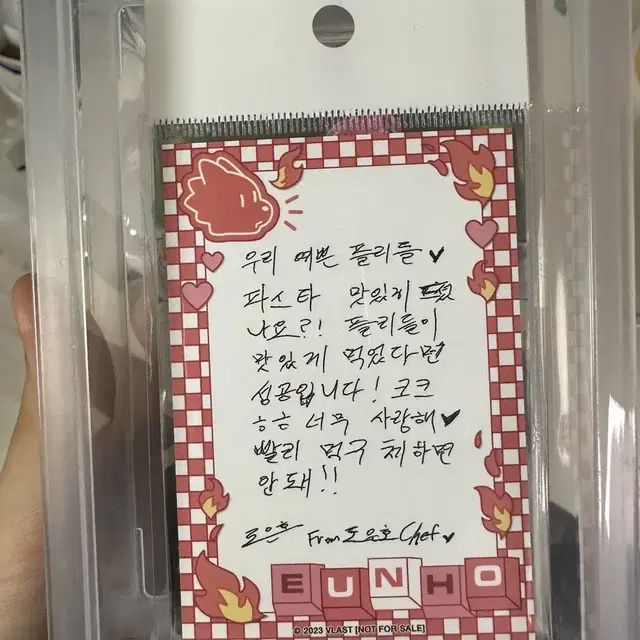 우리 예쁜 플리들 ♥
파스타 맛있게 드셨
나요?! 플리들이
맛있게 먹었다면
성공입니다! 코크
ㅎㅎ 너무 사랑해 ♥
빨리 먹구 체하면
안돼!!
도은호 From 도은호 Chef ♥
EUNHO
© 2023 VLAST [NOT FOR SALE]